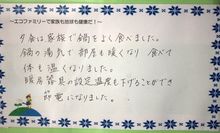 ～エコファミリーで家族も地球も健康だ！～
夕食は家族で鍋をよく食べました。
鍋の湯気で部屋も暖くなり 食べて
体も温くなりました。
暖房器具の設定温度も下げることができ
節電になりました。